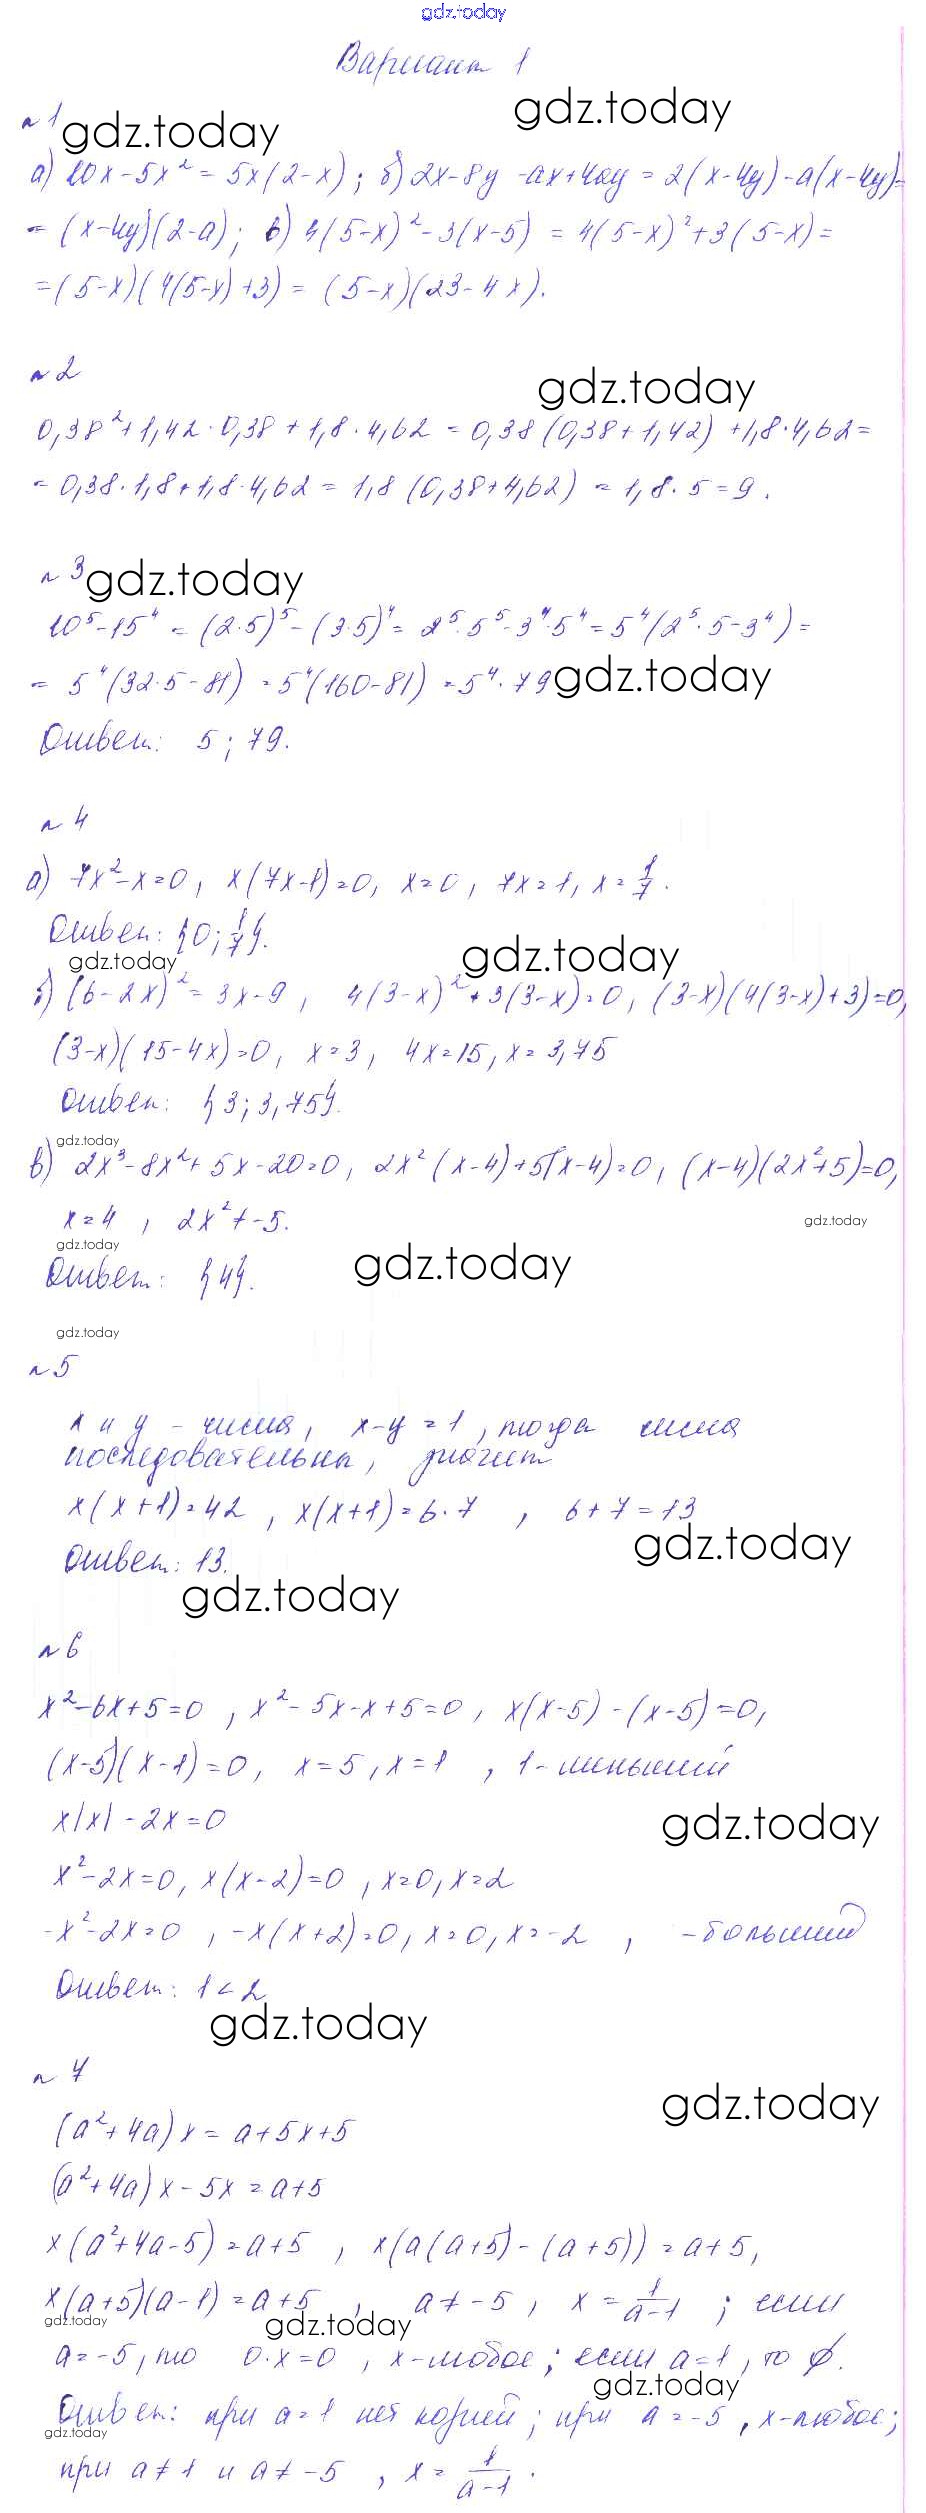 gdz.today
Вариант 1
№1 gdz.today gdz.today
а) 10x-5x² = 5x(2-x); б) 2x-8y-ax+4ay = 2(x-4y)-a(x-4y)=
= (x-4y)(2-a); в) 4(5-x)²-3(x-5) = 4(5-x)²+3(5-x)=
=(5-x)(4(5-x)+3) = (5-x)(23-4x).
№2
gdz.today
0,38²+1,42·0,38+1,8·4,62 = 0,38(0,38+1,42)+1,8·4,62=
= 0,38·1,8+1,8·4,62 = 1,8(0,38+4,62) = 1,8·5=9.
№3 gdz.today
10⁵-15⁴ = (2·5)⁵-(3·5)⁴= 2⁵·5⁵-3⁴·5⁴=5⁴(2⁵·5-3⁴)=
= 5⁴(32·5-81) =5⁴(160-81) =5⁴·79 gdz.today
Ответ: 5; 79.
№4
а) 7x²-x=0, x(7x-1)=0, x=0, 7x=1, x=1/7.
Ответ: {0; 1/7}.
gdz.today gdz.today
б) (6-2x)²=3x-9, 4(3-x)²+3(3-x)=0, (3-x)(4(3-x)+3)=0,
(3-x)(15-4x)=0, x=3, 4x=15, x=3,75
Ответ: {3; 3,75}.
gdz.today
в) 2x³-8x²+5x-20=0, 2x²(x-4)+5(x-4)=0, (x-4)(2x²+5)=0,
x=4, 2x²≠-5.
gdz.today
gdz.today
Ответ: {4}.
gdz.today
gdz.today
№5
x и y - числа, x-y=1, тогда числа
последовательны, значит
x(x+1)=42, x(x+1)=6·7, 6+7=13
gdz.today
Ответ: 13.
gdz.today
№6
x²-6x+5=0, x²-5x-x+5=0, x(x-5)-(x-5)=0,
(x-5)(x-1)=0, x=5, x=1, 1-меньший
x|x|-2x=0
gdz.today
x²-2x=0, x(x-2)=0, x=0, x=2
-x²-2x=0, -x(x+2)=0, x=0, x=-2, -больший
Ответ: 1<2
gdz.today
№7
gdz.today
(a²+4a)x=a+5x+5
(a²+4a)x-5x=a+5
x(a²+4a-5)=a+5, x(a(a+5)-(a+5))=a+5,
x(a+5)(a-1)=a+5, a≠-5, x=1/(a-1); если
gdz.today gdz.today
a=-5, то 0·x=0, x-любое; если a=1, то ∅.
gdz.today
Ответ: при a=1 нет корней; при a=-5, x-любое;
gdz.today
при a≠1 и a≠-5, x=1/(a-1).